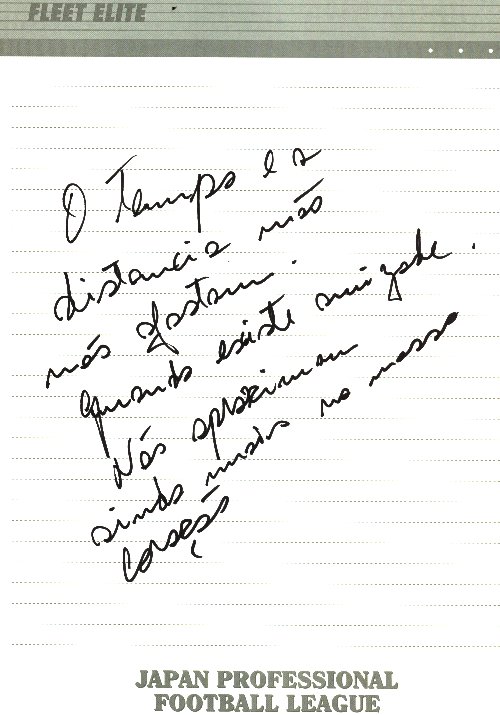 FLEET ELITE
O Tempo e a
distancia não
nós afastam.
quando existe amizade.
Nós aproximam
ainda mais no nosso
Coração
JAPAN PROFESSIONAL
FOOTBALL LEAGUE